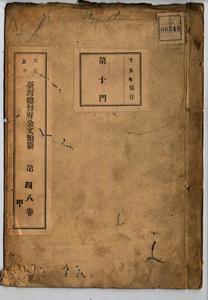 06248
十五年保存
第十門
大正五年
臺灣總督府公文類纂 第四八卷
甲